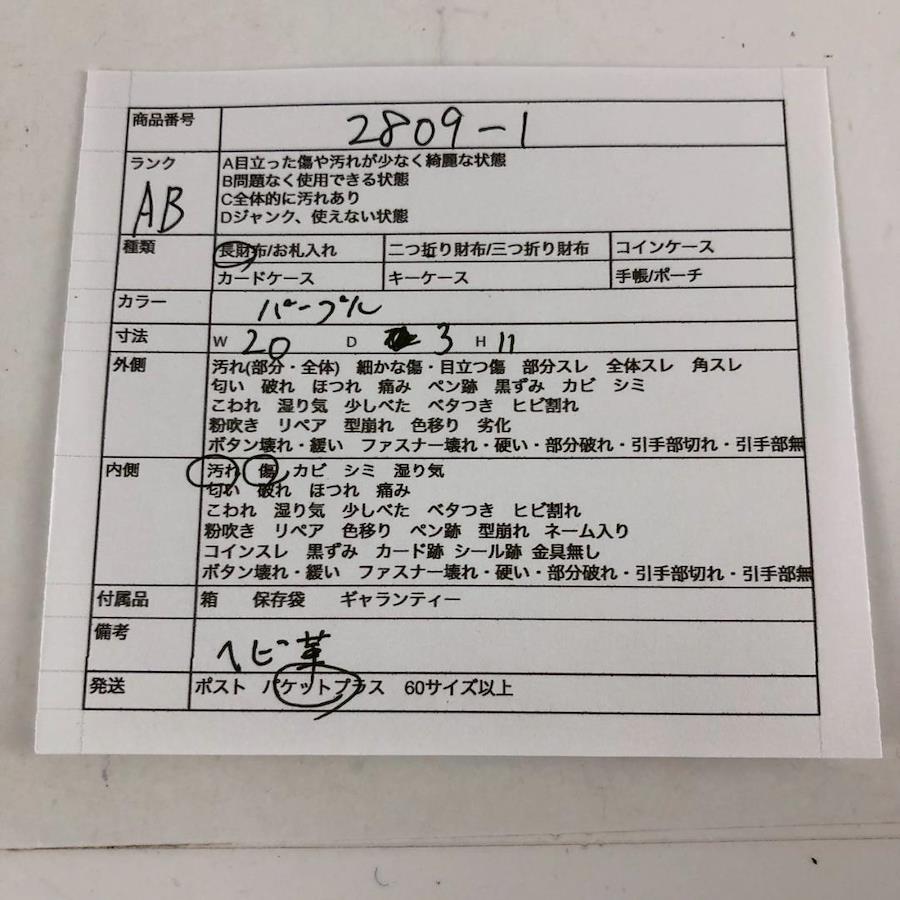 商品番号 2809-1
ランク AB
A目立った傷や汚れが少なく綺麗な状態
B問題なく使用できる状態
C全体的に汚れあり
Dジャンク、使えない状態
種類 長財布/お札入れ 二つ折り財布/三つ折り財布 コインケース
カードケース キーケース 手帳/ポーチ
カラー パープル
寸法 W 20 D 3 H 11
外側 汚れ(部分・全体) 細かな傷・目立つ傷 部分スレ 全体スレ 角スレ
匂い 破れ ほつれ 痛み ペン跡 黒ずみ カビ シミ
こわれ 湿り気 少しべた ベタつき ヒビ割れ
粉吹き リペア 型崩れ 色移り 劣化
ボタン壊れ・緩い ファスナー壊れ・硬い・部分破れ・引手部切れ・引手部無
内側 汚れ 傷 カビ シミ 湿り気
匂い 破れ ほつれ 痛み
こわれ 湿り気 少しべた ベタつき ヒビ割れ
粉吹き リペア 色移り ペン跡 型崩れ ネーム入り
コインスレ 黒ずみ カード跡 シール跡 金具無し
ボタン壊れ・緩い ファスナー壊れ・硬い・部分破れ・引手部切れ・引手部無
付属品 箱 保存袋 ギャランティー
備考 ヘビ革
発送 ポスト パケットプラス 60サイズ以上